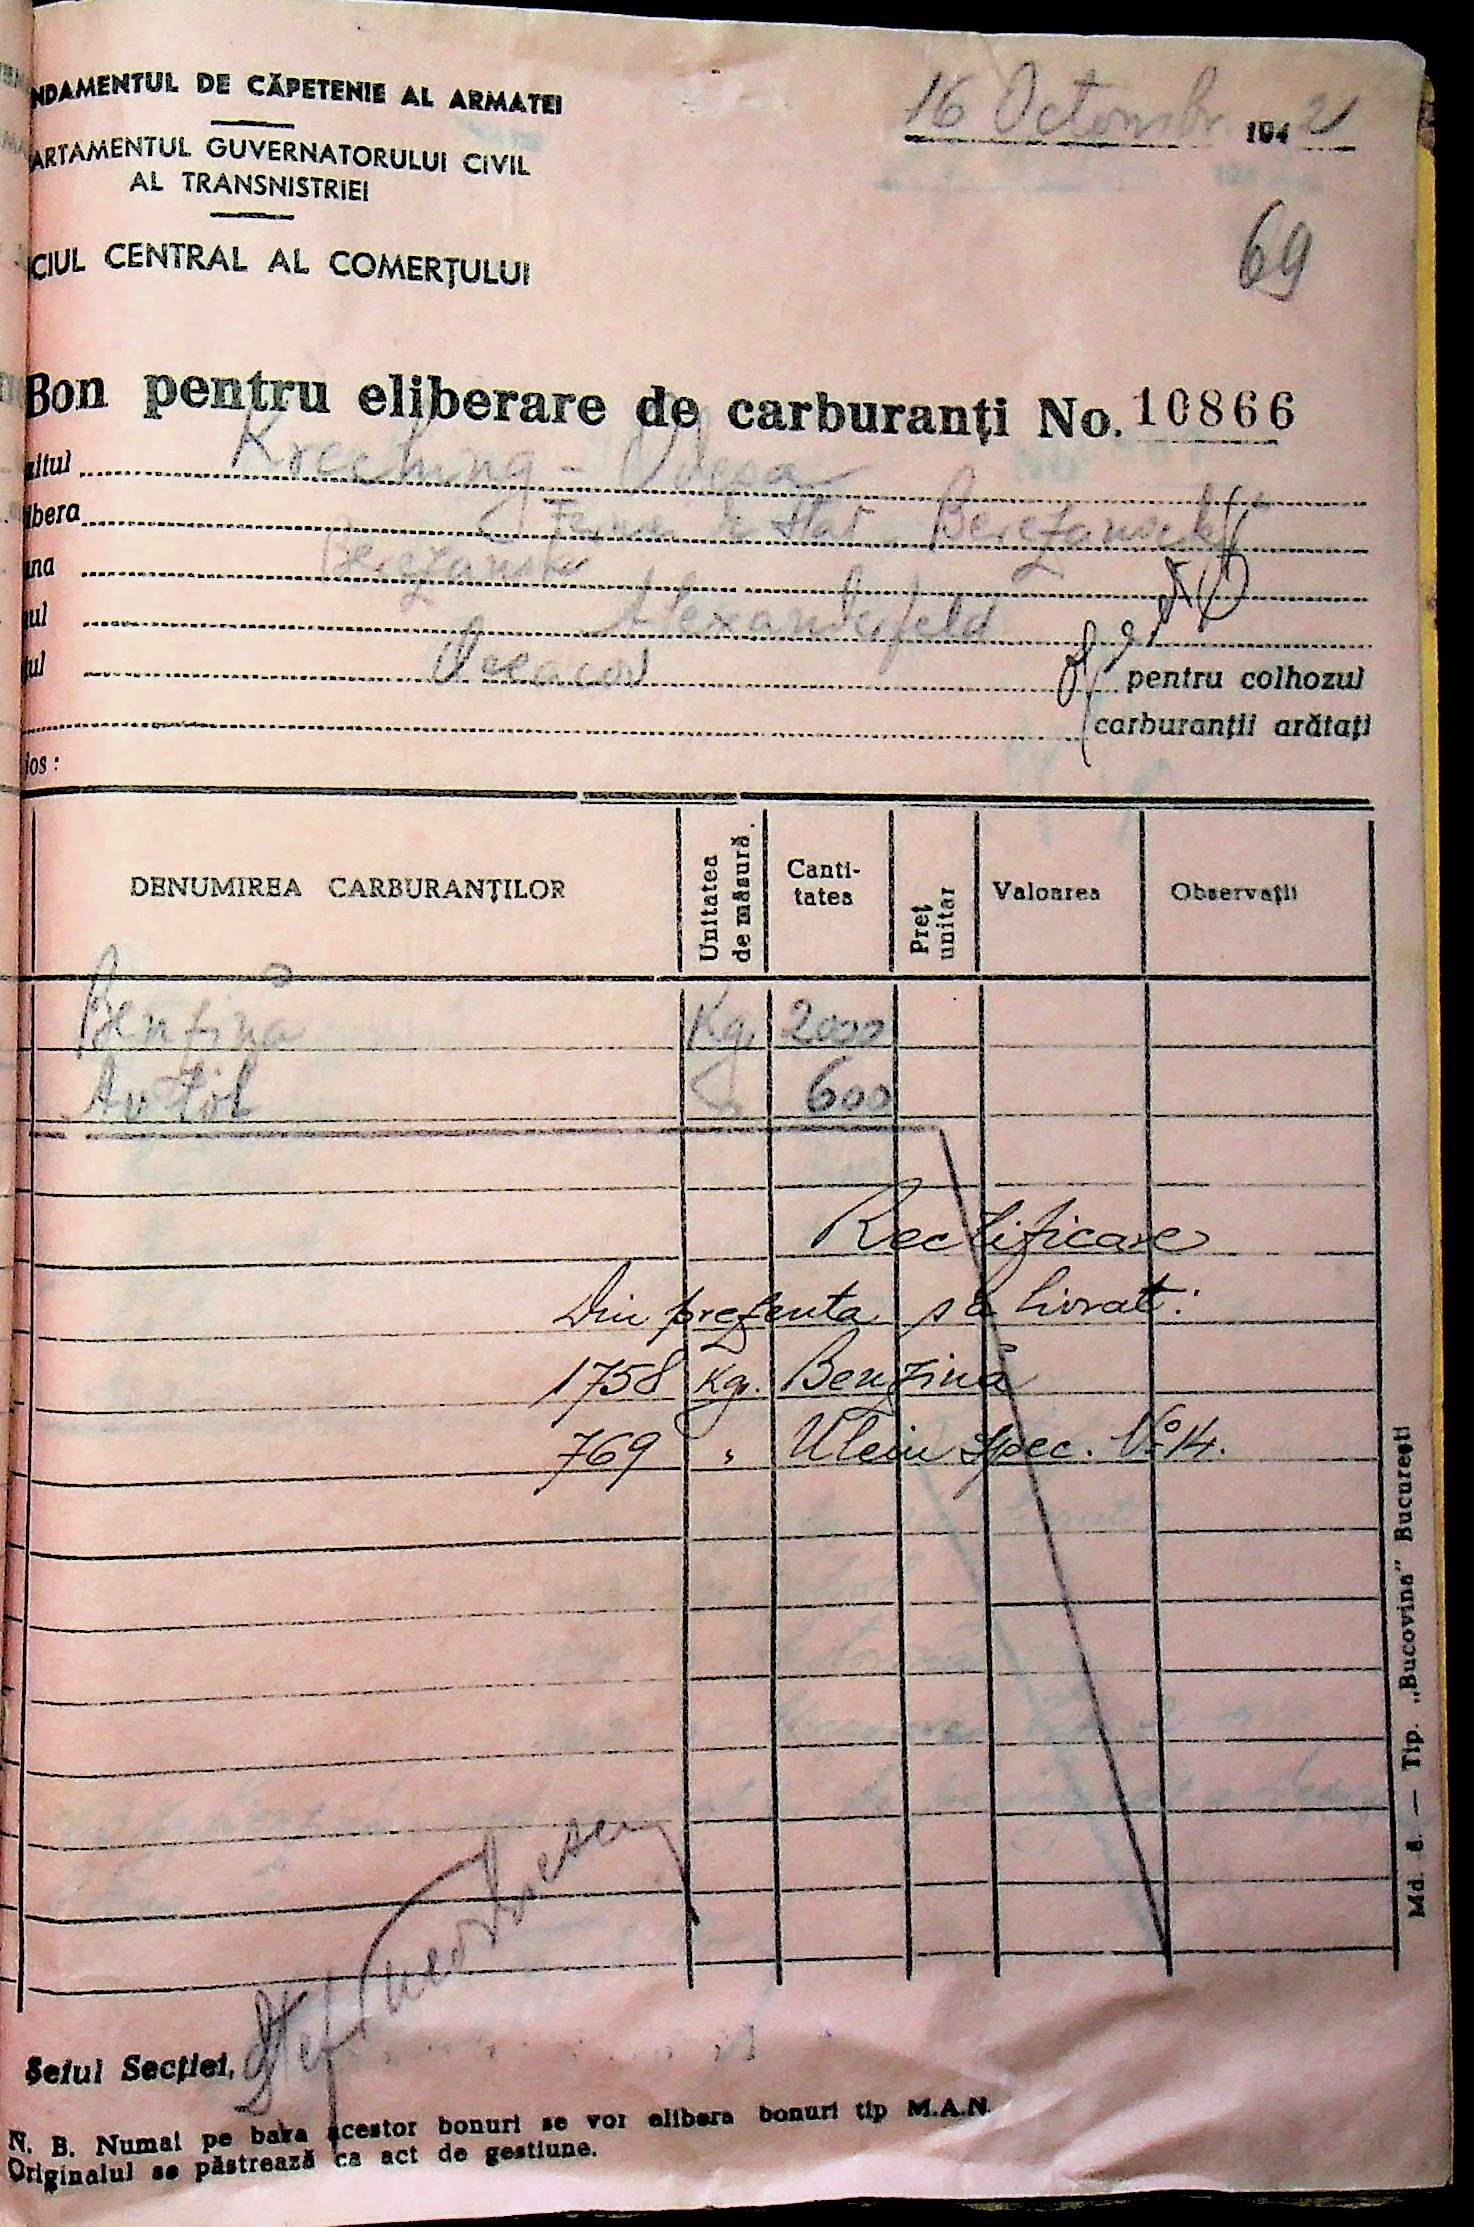 NDAMENTUL DE CĂPETENIE AL ARMATEI
16 Octombr 1942
ARTAMENTUL GUVERNATORULUI CIVIL
AL TRANSNISTRIEI
69
CIUL CENTRAL AL COMERŢULUI
Bon pentru eliberare de carburanţi No. 10866
itul Kreching - Odesa
ibera Ferma de Stat Berezanschi
ana Berezanca
ul Alexanderfeld
ul Oceacov pentru colhozul
carburanţii arătaţi
jos :
DENUMIREA CARBURANŢILOR Unitatea de măsură. Canti-tatea Preţ unitar Valoarea Observaţii
Benzină Kg. 2000
Avtol " 600
Rectificare
Din prezenta s'a livrat:
1758 Kg. Benzină
769 " Uleiu spec. No 14.
Şeful Secţiei,
N. B. Numai pe baza acestor bonuri se vor elibera bonuri tip M.A.N.
Originalul se păstrează ca act de gestiune.
Md. 8. — Tip. „Bucovina" Bucureşti